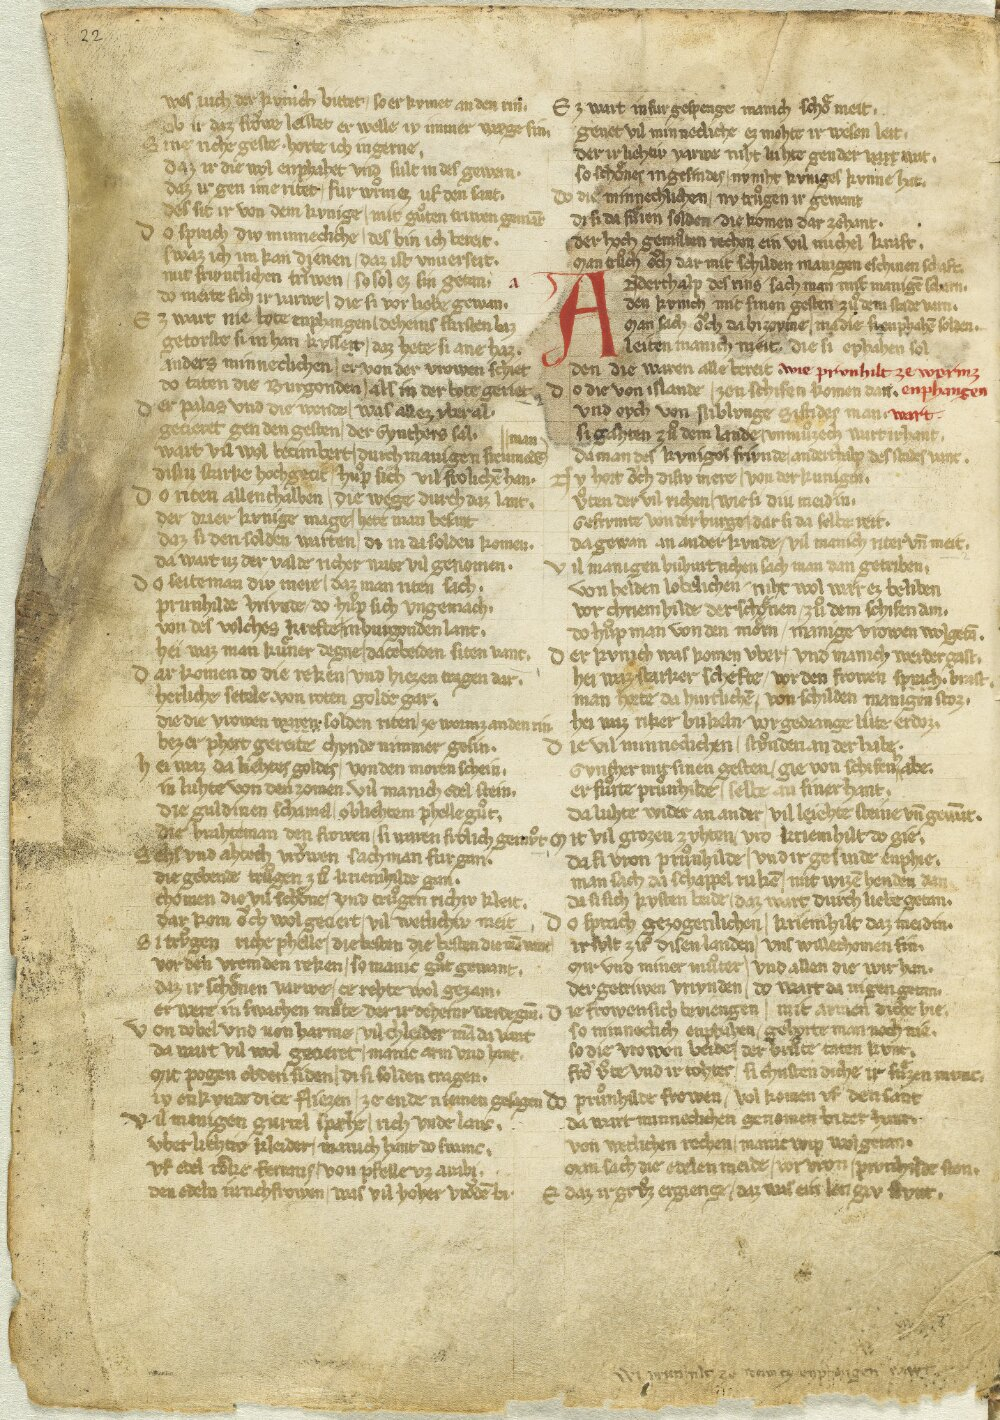 22
wes iuch der kvnich bittet / so er kvmet an den rin.
ob ir daz frowe leistet er welle iv immer wege sin.
S ine riche geste . horte ich in gerne,
daz ir die wol enphahet vnd sult in des gewern.
daz ir gen ime ritet / fur wormez vf den sant.
des sit ir von dem kvnige / mit guten triwen gemant
D o sprach div minnecliche / des bin ich bereit.
swaz ich im kan dienen / daz ist vnverseit.
mit frivntlichen triwen / so sol ez sin getan.
do merte sich ir varwe / die si vor liebe gewan.
E z wart nie bote enphangen / deheins fursten baz
getorste si in han kvsset / daz hete si ane haz.
anders minneclichen / er von der vrowen schiet
do taten die Burgonden / als in der bote geriet
D er palas vnd die wende / was allez vber al.
gecieret gen den gesten / der Gvnthers sal.
wart vil wol bezimbert / durch manigen fremden || man
disiv starke hochgecit / hup sich vil frolichen han.
D o riten allenthalben / die wege durch daz lant.
der drier kvnige mage / hete man besant
daz si den solden warten / di in da solden komen.
da wart uz der valde richer wate vil genomen.
D o seite man div mere / daz man riten sach.
prunhilde vrivnde / do hup sich vngemach.
von des volches krefte / in burgonden lant.
hei waz man kuner degne / da ce beiden siten vant.
D ar komen do die reken / vnd hiezen tragen dar.
herliche setele . von roten golde gar.
die die vrowen solden riten / ze wormz an den rin
bezer phert gereite chvnde nimmer gesin.
h ei waz da liehtes goldes / von den moren schein.
in luhte von den zomen . vil manich edel stein.
die guldinen schamel / ob liehtem phelle gut,
die brahte man den frowen / si waren frolich gemvt
S ehs vnd ahtoch vrowen sach man fur gan.
die gebende trugen zu kriemhilde gan.
chomen die vil schone / vnd trugen richiv kleit.
dar kom och wol geciert / vil wetlichiv meit
S i trugen riche phelle / die besten die besten die man vant
vor den vremden reken / so manic gut gewant,
daz ir schonen varwe / ce rehte wol gezam.
er were in swachen mute der ir deheiner werde gram.
V on zobel vnd von harme / vil chleider man da vant
da wart vil wol gecieret / manic arm vnd hant.
mit pogen ob den siden / di si solden tragen.
iv enkvnde dice fliezen / ze ende niemen gesagen
V il manigen gurtel spehe / rich vnde lanc,
vber liehtiv kleider / manich hant do swanc.
vf edel rocke ferrans / von pfelle vz arabi.
den edeln iuncfrowen / was vil hoher vroude bi.
E z wart in fur gespenge manich schone meit.
genet vil minnecliche ez mohte ir wesen leit.
der ir liehtiv varwe niht luhte gen der wat
so schones ingesindes / nv niht kvniges kvnne hat.
Do die minneclichen / nv trugen ir gewant
di si da furen solden die komen dar zehant.
der hoch gemuten rechen ein vil michel kraft.
man truch och dar mit schilden manigen eschinen schaft.
a
A nderthalp des rins sach man mit manigen scharn.
den kvnich mit sinen gesten zu dem stade varn.
man sach och da bi zovme / manic die si enphahen solden.
leiten manich meit. die si ephahen sol
den die waren alle bereit wie prvnhilt ze wormz
D o die von islande / zen schifen komen dan. enphangen
vnd ovch von niblunge Sifrides man. wart.
si gahten zu dem lande / vnmuzech wart ir hant.
da man des kvniges frivnde / anderthalp des stades vant.
N v hort och disiv mere / von der kunigin.
Vten der vil richen / wie si div meidin.
gefrumte von der burge / dar si da selbe reit.
da gewan an ander kvnde / vil manich riter vnd meit.
V il manigen buhurt richen sach man dan getriben,
von helden lobelichen / niht wol war ez beliben
vor chriemhilde der schonen / zu dem schifen dan.
do hup man von den morn / manige vrowen wolgetan.
D er kvnich was komen vber / vnd manich werder gast.
hei waz starker schefte / vor den frowen sprach . brast.
man horte da hurtlichen / von schilden manigen stoz.
hei waz riker bukeln vor gedrange lute erdoz.
D ie vil minneclichen / stvnden an der habe.
Gvnther mit sinen gesten / gie von schifen abe.
er furte prunhilde / selbe an siner hant.
da luhte wider an ander / vil leichte steine vnd gewant.
M it vil grozen zvhten / vro kriemhilt do gie.
da si vron prunhilde / vnd ir gesinde enphie.
man sach da schappel ruken / mit wizen henden dan
da si sich kvsten beide / daz wart durch liebe getan.
D o sprach gezogenlichen / kriemhilt daz meidin.
ir svlt zu disen landen / vns willechomen sin.
mir vnd miner muter / vnd allen die wir han.
der getriwen vrivnden / do wart da nigen getan.
D ie frowen sich bevîengen / mit armen diche hie.
so minneclich enphahen / gehorte man noch nie.
so die vrowen beide / der brute taten kvnt.
fro vte vnd ir tohter / si chusten diche ir suzen munt.
Do prunhilde frowen / vol komen vf den sant
da wart minneclichen genomen bi der hant
von wetlichen rechen / manic wip wol getan.
man sach die edelen meide / vor vron prvnhilde stan.
E daz ir gruz ergienge / daz was ein lengiv stvnt.